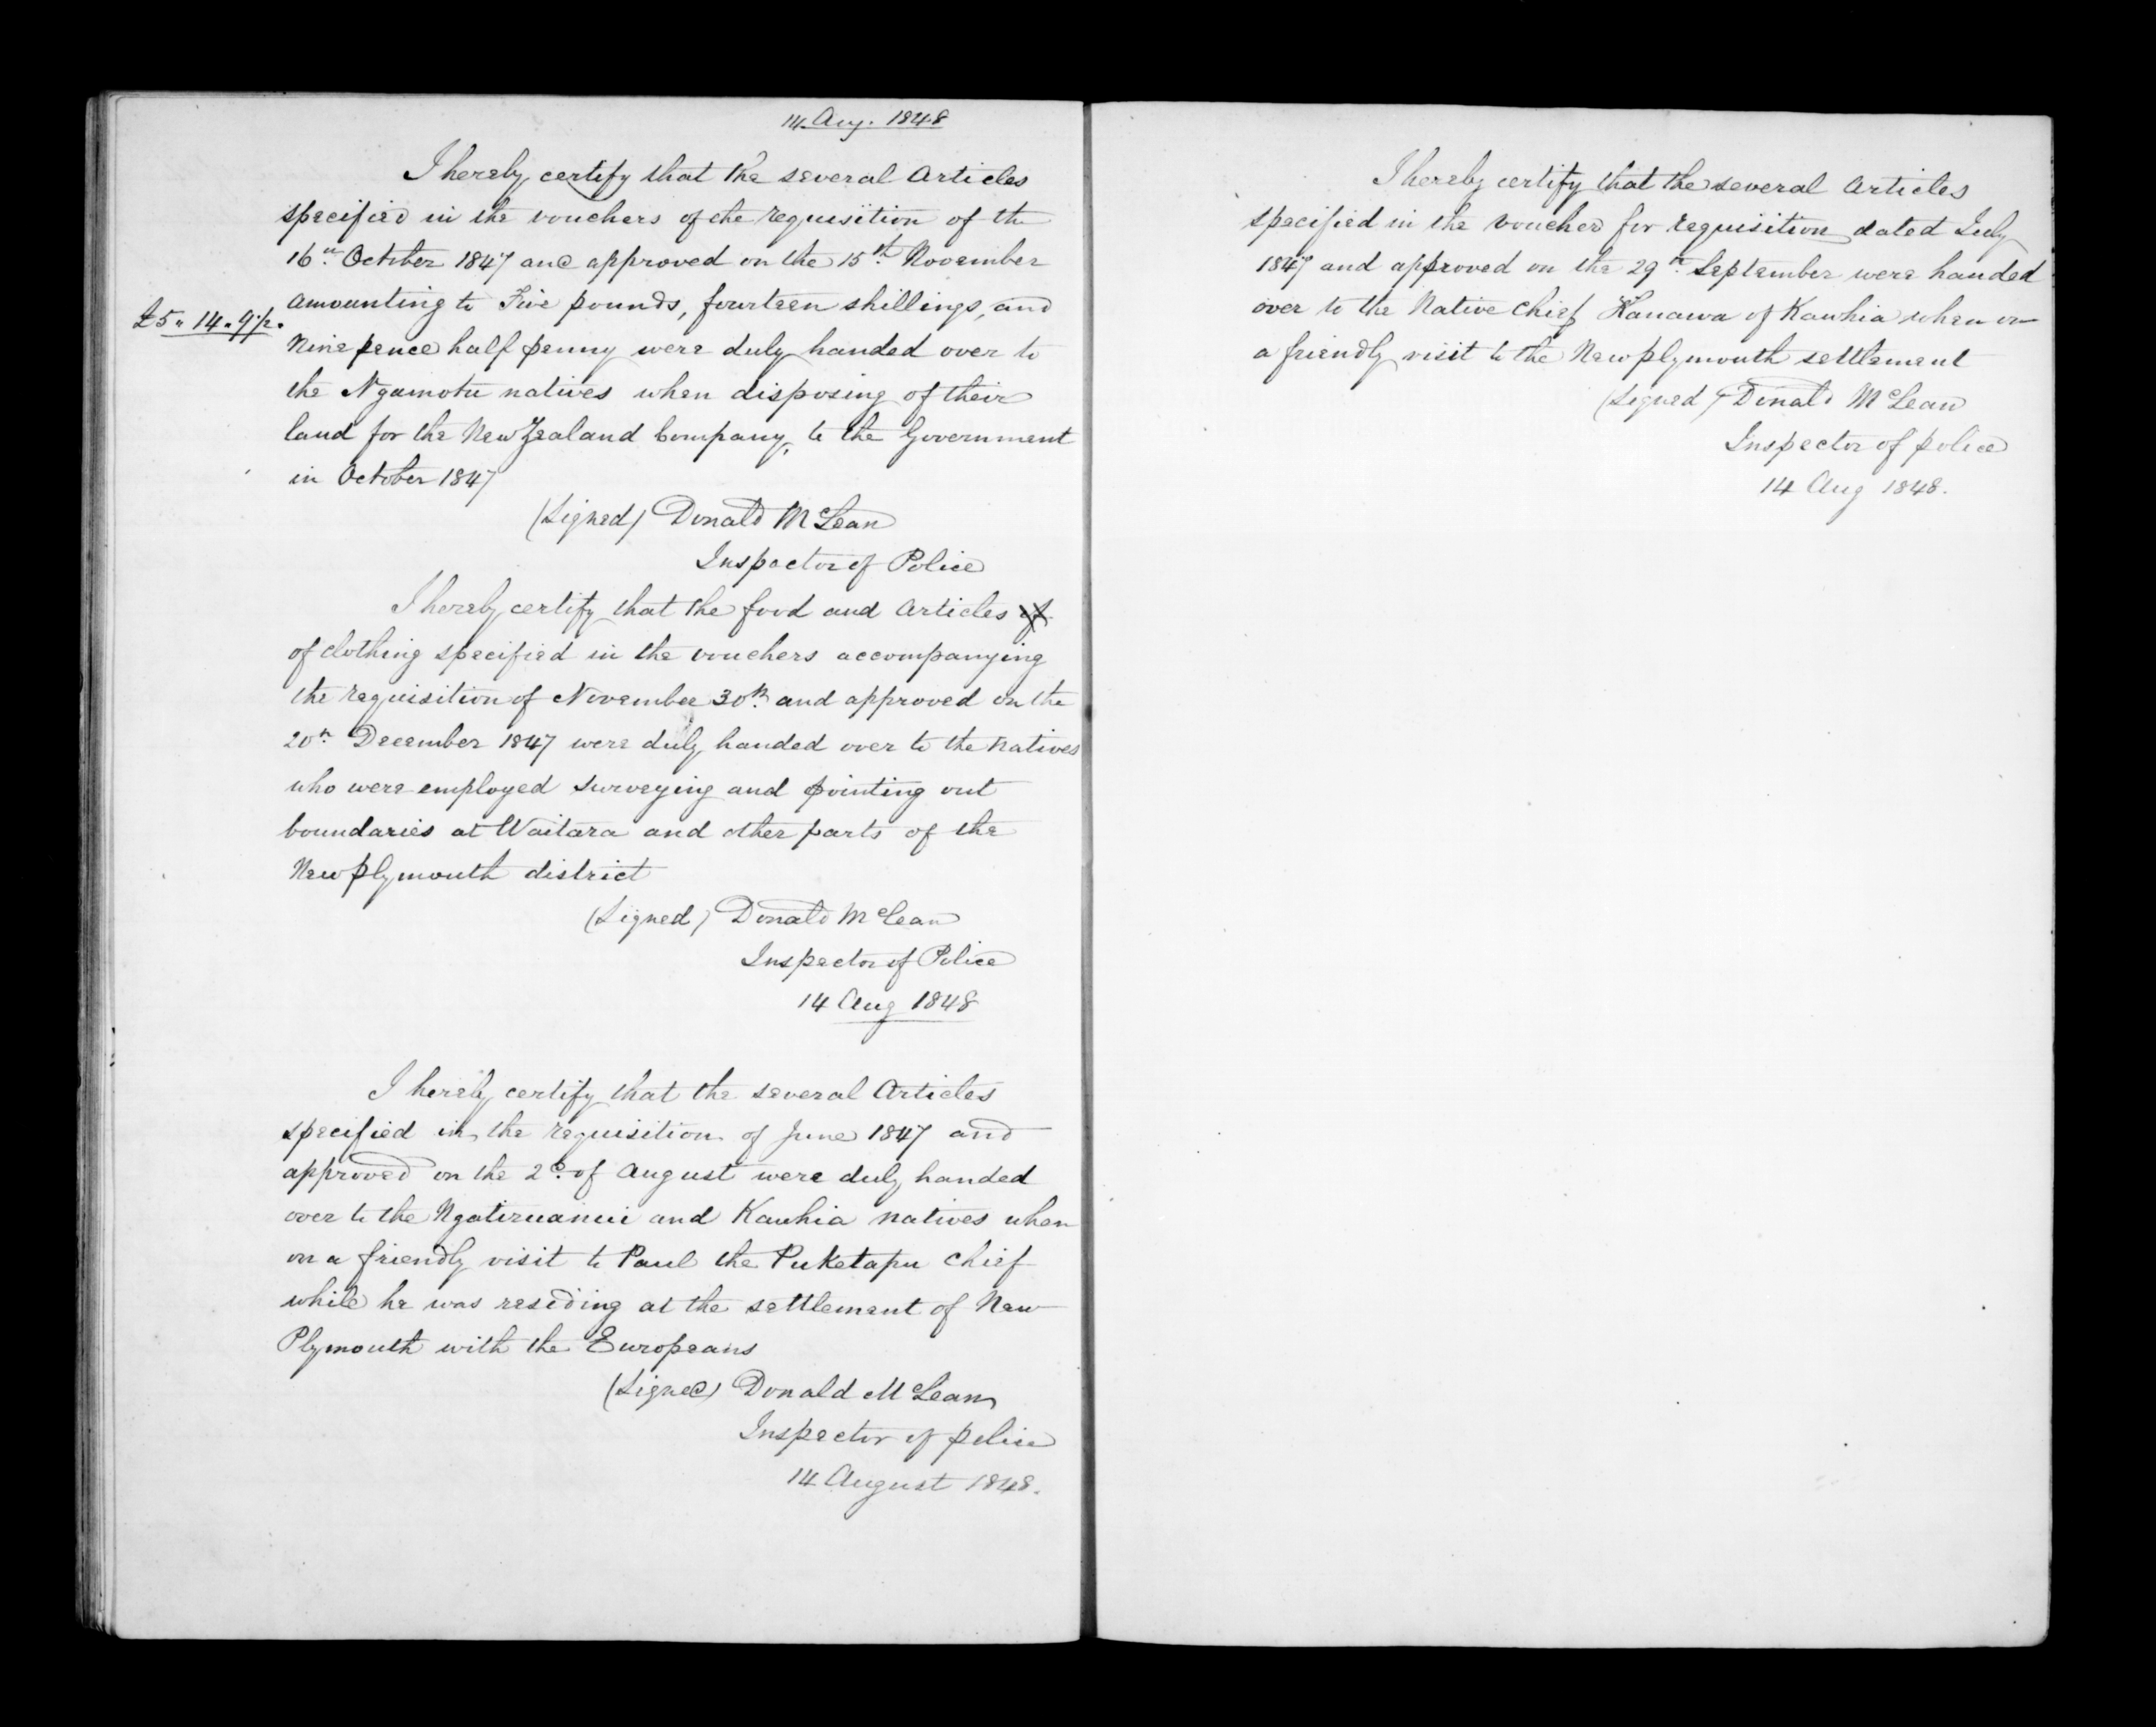 14 Aug. 1848
I hereby certify that the several Articles
specified in the vouchers of the requisition of the
16th October 1847 and approved on the 15th November
£5 " 14 " 9½ amounting to Five pounds, fourteen shillings, and
Nine pence half penny were duly handed over to
the Ngamotu natives when disposing of their
land for the New Zealand Company, to the Government
in October 1847
(Signed) Donald McLean
Inspector of Police
I hereby certify that the food and Articles of
of clothing specified in the vouchers accompanying
the requisition of November 30th and approved on the
20th December 1847 were duly handed over to the natives
who were employed surveying and pointing out
boundaries at Waitara and other parts of the
New plymouth district
(Signed) Donald McLean
Inspector of Police
14 Aug 1848
I hereby certify that the several Articles
specified in the requisition of June 1847 and
approved on the 2d of August were duly handed
over to the Ngatiruanui and Kawhia natives when
on a friendly visit to Paul the Puketapu chief
while he was residing at the settlement of New
Plymouth with the Europeans
(Signed) Donald McLean
Inspector of police
14 August 1848.
I hereby certify that the several Articles
specified in the voucher for requisition dated July
1847 and approved on the 29th September were handed
over to the Native chief Kanawa of Kawhia when on
a friendly visit to the New plymouth settlement
(Signed) Donald McLean
Inspector of police
14 Aug 1848.